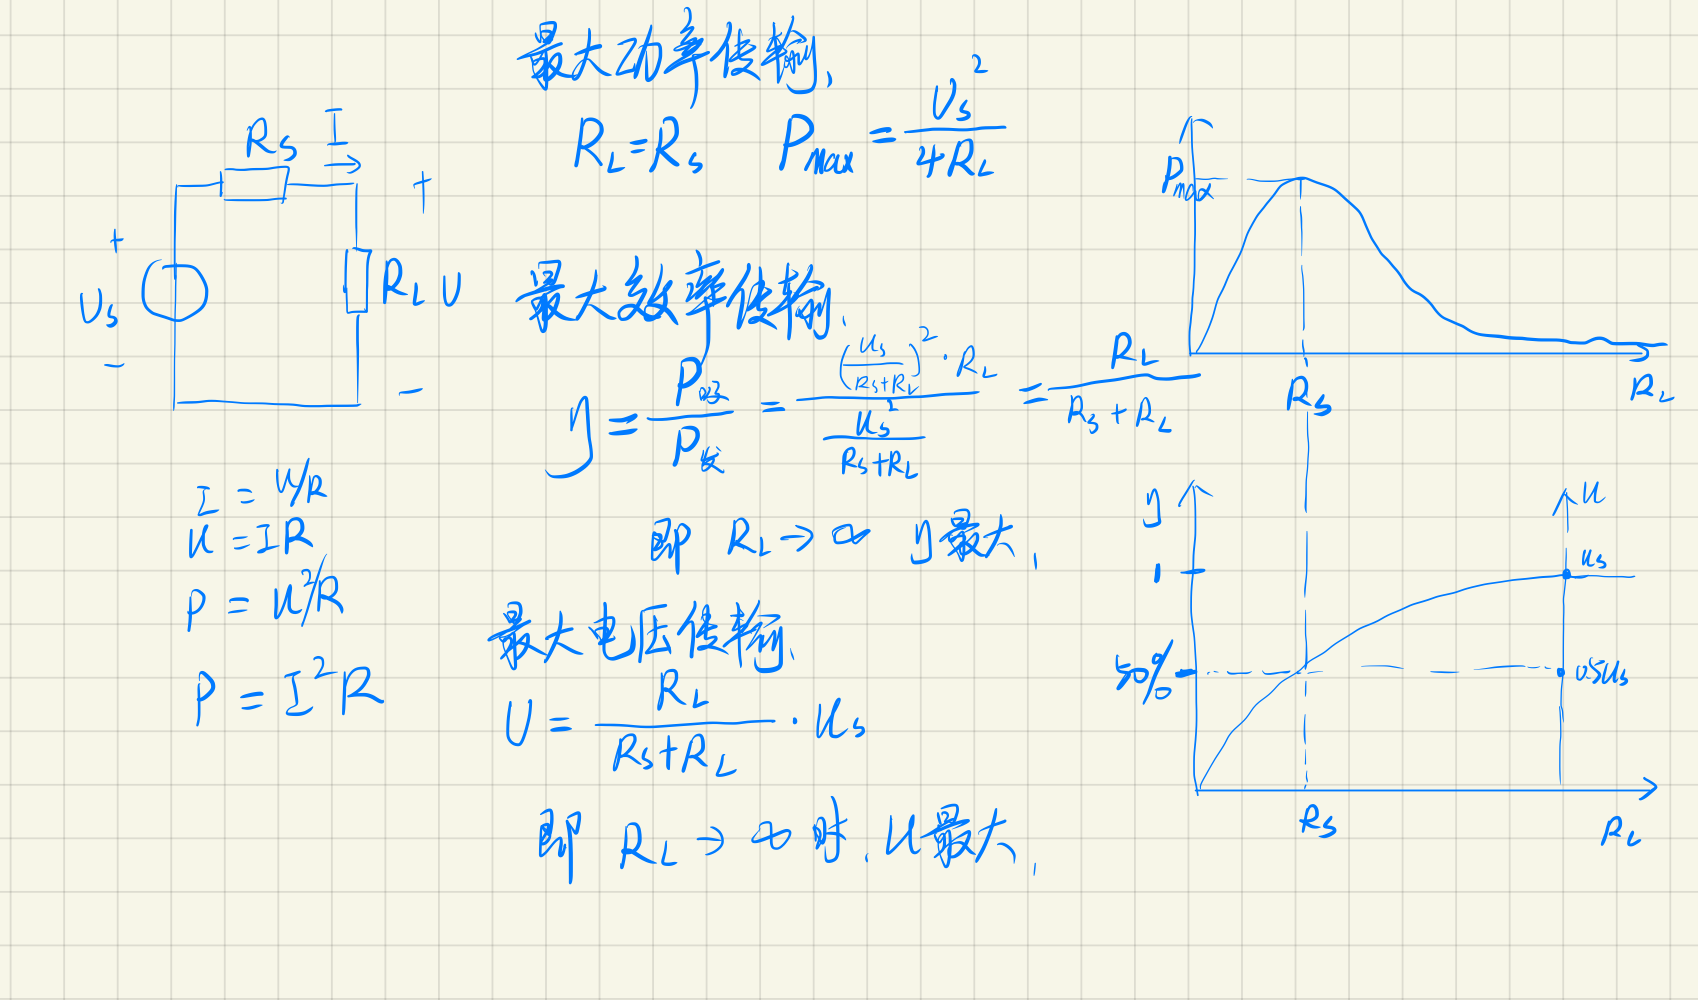 最大功率传输,
R_L=R_s  P_max = U_s² / 4R_L
R_s  I
+  +
U_s  R_L  U
-  -
最大效率传输,
η = P_吸 / P_发 = (u_s / (R_s+R_L))² · R_L / (u_s² / (R_s+R_L)) = R_L / (R_s+R_L)
即 R_L→∞ η最大,
I = U/R
u = IR
P = u²/R
P = I²R
最大电压传输,
U = R_L / (R_s+R_L) · u_s
即 R_L→∞时, u最大,
P_max
R_s  R_L
η  u
1  u_s
50%  0.5u_s
R_s  R_L